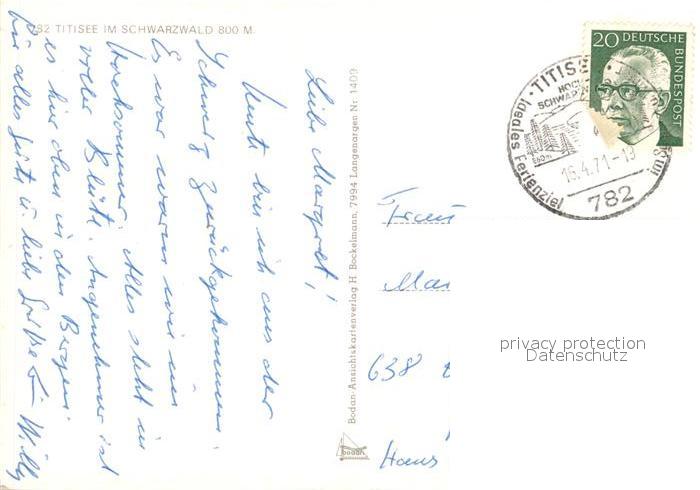 782 TITISEE IM SCHWARZWALD 800 M
Liebe Margret!
Heute bin ich aus der
Schweiz zurückgekommen.
Es war warm wie im
Hochsommer. Alles steht in
voller Blüte. Angenehmer ist
es hier oben in den Bergen.
Für alles Gute u. liebe Grüße Willy
Bodan-Ansichtskartenverlag H Bockelmann, 7994 Langenargen Nr 1409
bodan
20 DEUTSCHE BUNDESPOST
TITISEE
HOCH
SCHWARZ
860 m
16.4.71-13
782
Ideales Ferienziel
Frau
Mar
638
Haus
privacy protection
Datenschutz